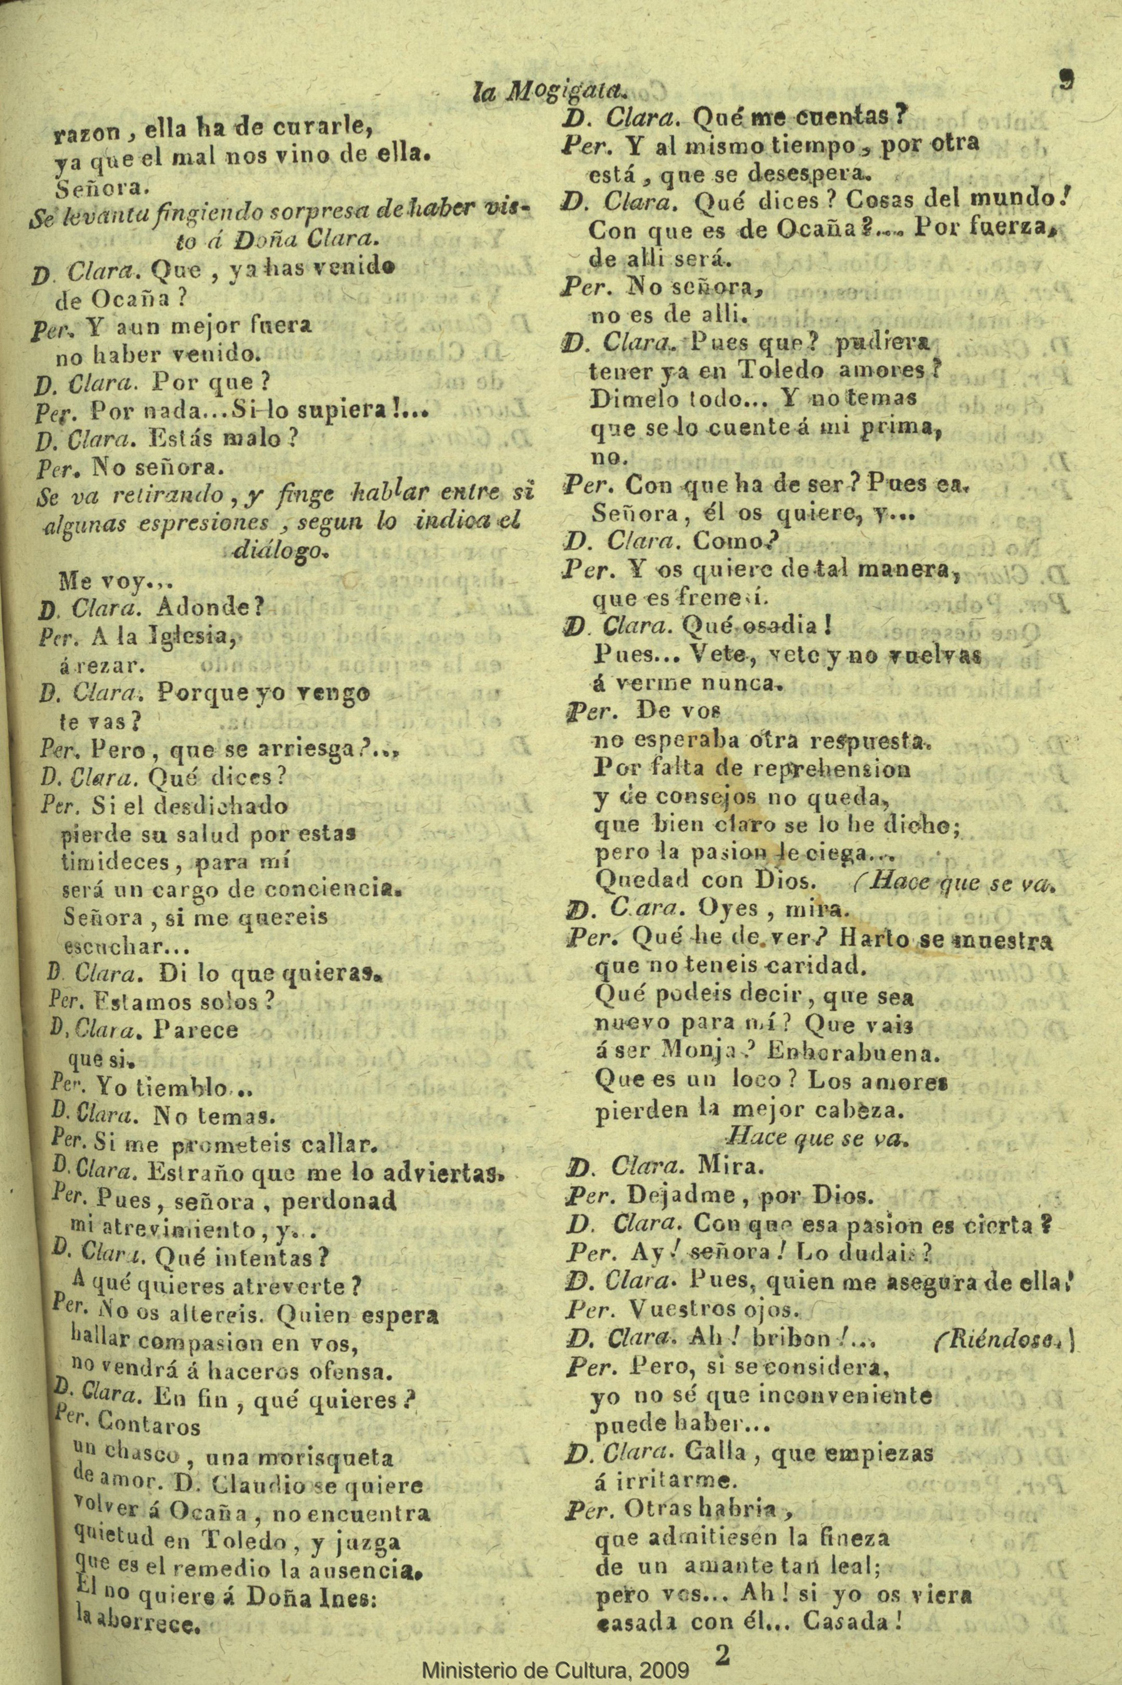 la Mogigata.
9
razon, ella ha de curarle,
ya que el mal nos vino de ella.
Señora.
Se levanta fingiendo sorpresa de haber vis-
to á Doña Clara.
D. Clara. Que, ya has venido
de Ocaña?
Per. Y aun mejor fuera
no haber venido.
D. Clara. Por que?
Per. Por nada... Si lo supiera!...
D. Clara. Estás malo?
Per. No señora.
Se va retirando, y finge hablar entre sí
algunas espresiones, segun lo indica el
diálogo.
Me voy...
D. Clara. Adonde?
Per. A la Iglesia,
á rezar.
D. Clara. Porque yo vengo
te vas?
Per. Pero, que se arriesga?...
D. Clara. Qué dices?
Per. Si el desdichado
pierde su salud por estas
timideces, para mí
será un cargo de conciencia.
Señora, si me quereis
escuchar...
D. Clara. Di lo que quieras.
Per. Estamos solos?
D. Clara. Parece
que si.
Per. Yo tiemblo...
D. Clara. No temas.
Per. Si me prometeis callar.
D. Clara. Estraño que me lo adviertas.
Per. Pues, señora, perdonad
mi atrevimiento, y...
D. Clara. Qué intentas?
A qué quieres atreverte?
Per. No os altereis. Quien espera
hallar compasion en vos,
no vendrá á haceros ofensa.
D. Clara. En fin, qué quieres?
Per. Contaros
un chasco, una morisqueta
de amor. D. Claudio se quiere
volver á Ocaña, no encuentra
quietud en Toledo, y juzga
que es el remedio la ausencia.
El no quiere á Doña Ines:
la aborrece.
D. Clara. Qué me cuentas?
Per. Y al mismo tiempo, por otra
está, que se desespera.
D. Clara. Qué dices? Cosas del mundo!
Con que es de Ocaña?... Por fuerza,
de alli será.
Per. No señora,
no es de alli.
D. Clara. Pues que? pudiera
tener ya en Toledo amores?
Dimelo todo... Y no temas
que se lo cuente á mi prima,
no.
Per. Con que ha de ser? Pues ea.
Señora, él os quiere, y...
D. Clara. Como?
Per. Y os quiere de tal manera,
que es frenesí.
D. Clara. Qué osadia!
Pues... Vete, vete y no vuelvas
á verme nunca.
Per. De vos
no esperaba otra respuesta.
Por falta de reprehension
y de consejos no queda,
que bien claro se lo he dicho;
pero la pasion le ciega...
Quedad con Dios. (Hace que se va.
D. Clara. Oyes, mira.
Per. Qué he de ver? Harto se muestra
que no teneis caridad.
Qué podeis decir, que sea
nuevo para mí? Que vais
á ser Monja? Enhorabuena.
Que es un loco? Los amores
pierden la mejor cabeza.
Hace que se va.
D. Clara. Mira.
Per. Dejadme, por Dios.
D. Clara. Con que esa pasion es cierta?
Per. Ay! señora! Lo dudais?
D. Clara. Pues, quien me asegura de ella?
Per. Vuestros ojos.
D. Clara. Ah! bribon!... (Riéndose.)
Per. Pero, si se considera,
yo no sé que inconveniente
puede haber...
D. Clara. Calla, que empiezas
á irritarme.
Per. Otras habria,
que admitiesen la fineza
de un amante tan leal;
pero vos... Ah! si yo os viera
casada con él... Casada!
2
Ministerio de Cultura, 2009